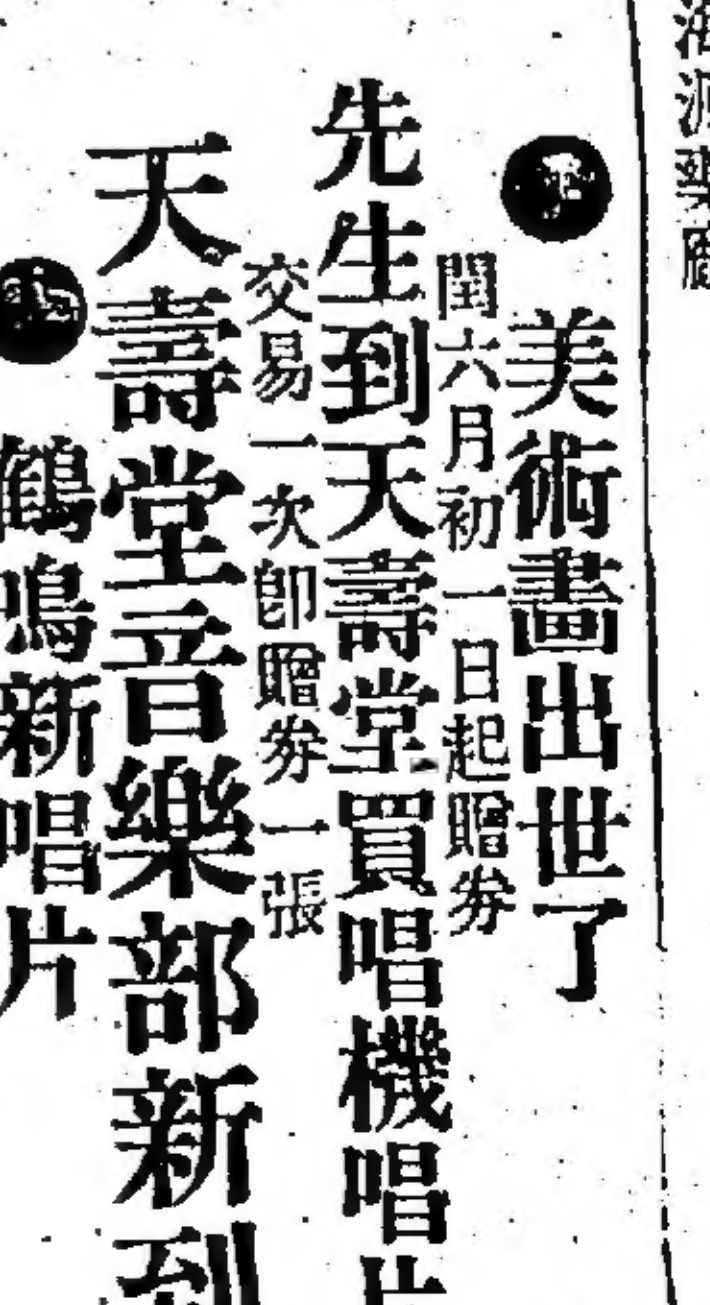 美術畫出世了
閏六月初一日起贈券
先生到天壽堂買唱機唱片
交易一次即贈券一張
天壽堂音樂部新到
鶴鳴新唱片